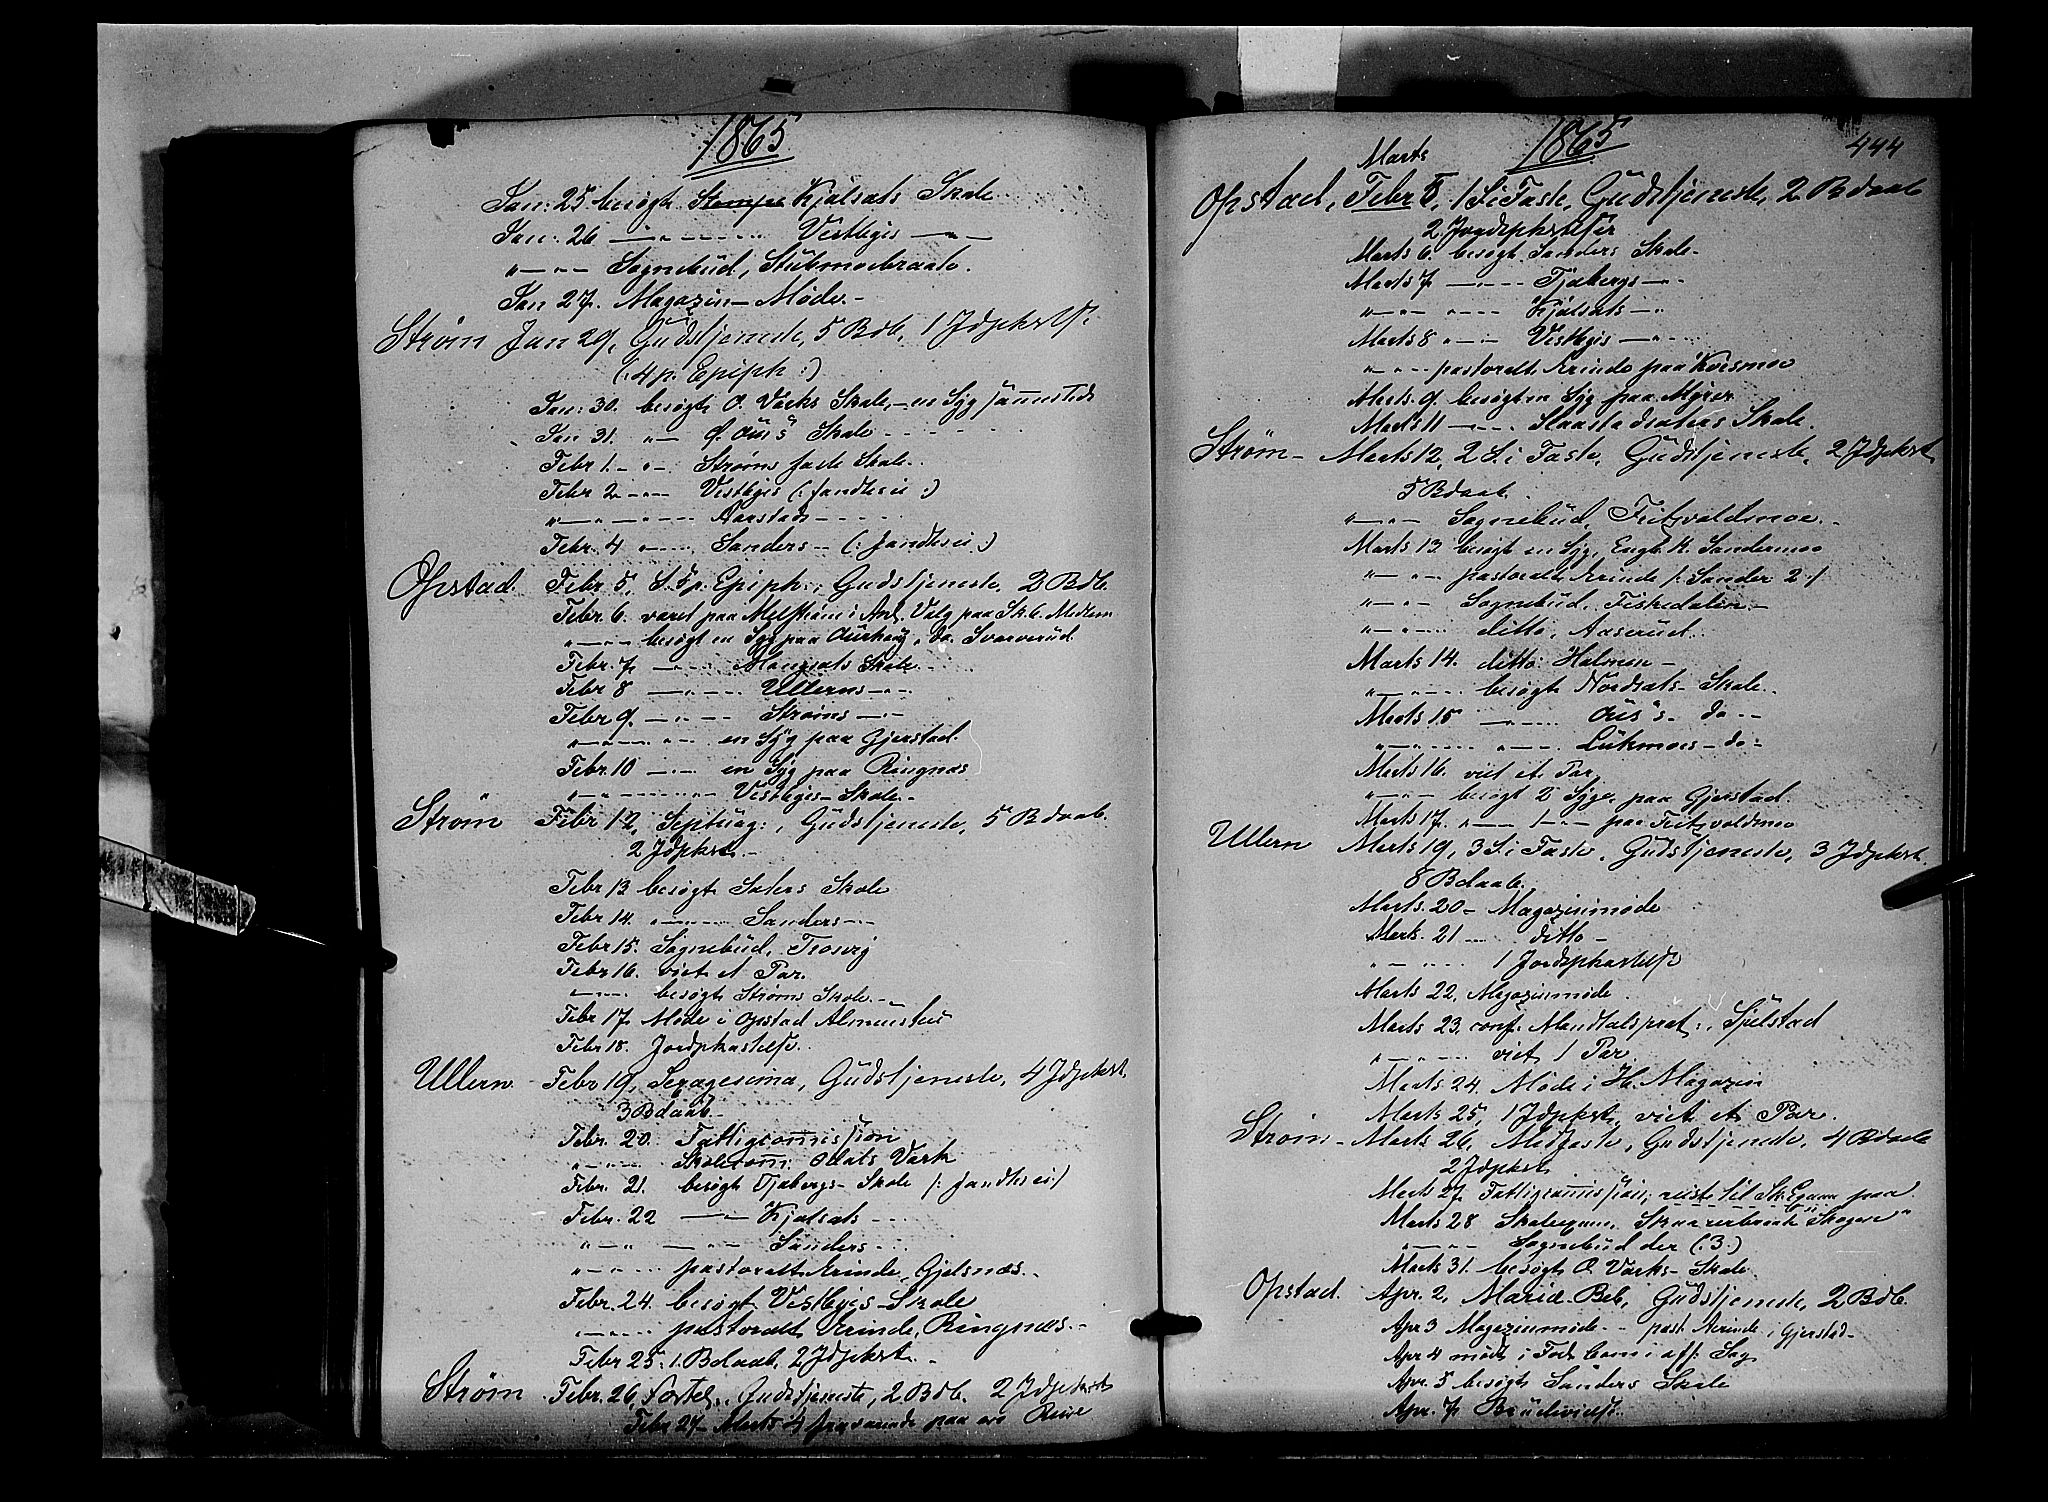 1865
Jan: 25 besøgt Stempe Kjølsats Skole
Jan: 26 — " — Vestbyes —
" — " — Sognebud, Stubmoebraate.
Jan 27. Magazin-Møde. —
Strøm Jan 29, Gudstjeneste, 5 Bdb, 1 Jdpkstlse.
(: 4 p. Epiph :)
Jan: 30. besøgt O. Værks Skole, — en Syg sammesteds
Jan 31. " — Skole
Febr 1. — " — Strøms faste Skole.
Febr 2 — " — Vestbyes (: :)
" — " — Aarstads
Febr. 4 " — Sanders — (: :)
Opstad Febr 5, S. 5 p. Epiph:, Gudstjeneste, 2 Bdb.
Febr 6. været paa i Anl. Valg paa Sk.C. Medlem
" — " — besøgt en Syg paa Aurhaug, do. Svarverud.
Febr. 7 — " — Mangsats Skole
Febr 8 — " — Ullerns — " —
Febr 9. — " — Strøms — " —
" — " — en Syg paa Gjerstad.
Febr. 10 — " — en Syg paa Ringnæs
" — " — Vestbyes — Skole. —
Strøm Febr 12, Septuag:, Gudstjeneste, 5 Bdaab.
2 Jdpkst. —
Febr 13 besøgt Sæters Skole
Febr 14. " — " — Sanders — " —
Febr 15. Sognebud, Trosvig
Febr 16. viet et Par.
" — " — besøgt Strøms Skole. —
Febr 17. Møde i Opstad Almenstue
Febr 18. Jordpkastelse.
Ullern Febr 19, Sexagesima, Gudstjeneste, 4 Jdpkst.
3 Bdaab —
Febr. 20. Fattigcommission
" — " — Skolecomm: Odals Værk
Febr. 21. besøgt Tjabergs — Skole /: :/
Febr. 22 — " — Kjølsats — " —
" — " — " — Sanders — " —
" — " — pastoralt Ærinde, Gjelsnæs. —
Febr. 24. besøgt Vestbyes — Skole
" — " — pastoralt Ærinde, Ringnæs. —
Febr 25. 1. Bdaab, 2 Jdpkst.
Strøm Febr. 26, Fastel., Gudstjeneste, 2 Bdb. 2 Jdpkst
Febr 27 — Marts 4 fraværende paa en Reise
1865
444
Marts
Opstad, Febr 5, 1 S i Faste, Gudstjeneste, 2 Bdaab
2 Jordpkastelser
Marts 6. besøgt Sanders Skole —
Marts 7 — " — Tjabergs — " —
" — " — " — Kjølsats — " —
Marts 8 " — " — Vestbyes — " —
" — " — pastoralt Ærinde paa Korsmoe
Marts 9. besøgt en Syg paa Myrer
Marts 11 — " — Slaastadsæters Skole.
Strøm — Marts 12, 2 S. i Faste, Gudstjeneste, 2 Jdpkst
5 Bdaab.
" — " — Sognebud, Fritzvoldmoe. —
Marts 13 besøgt en Syg, Engb. K. Sandermoe
" — " — pastoralt Ærinde /: Sander 2 :/
" — " — Sognebud, Fiskedalen —
" — " — ditto, Aaserud.
Marts 14. ditto Holmen —
" — " — besøgt Nordsats — Skole.
Marts 15 " — " — Aus's — do —
" — " — " — Lukmoes — do —
Marts 16. viet et Par.
" — " — besøgt 2 Syge paa Gjerstad.
Marts 17. " — 1 — " — paa Fritzvoldmoe
Ullern Marts 19, 3 S. i Faste, Gudstjeneste, 3 Jdpkst
8 Bdaab.
Marts. 20 — Magazinmøde
Marts. 21 — ditto —
" — " — 1 Jordpkastelse
Marts 22, Magazinmøde.
Marts 23, conf. Mandtalsprot:, Sjulstad
" — " — viet 1 Par.
Marts 24. Møde i H. Magazin
Marts 25, 1 Jdpkst, viet et Par.
Strøm — Marts 26, Midfaste, Gudstjeneste, 4 Bdaab
2 Jdpkst
Marts 27. Fattigcommission, reiste til Sk. Exam paa
Marts 28 Skoleexam. "Skogen"
" — " — Sognebud der (: 3 :)
Marts 31. besøgt O. Værks — Skole
Opstad. Apr. 2, Mariæ Beb., Gudstjeneste, 2 Bdb.
Apr 3 Magazinmøde — past Ærinde, Gjerstad —
Apr 4 mødt i Com i off. Sag
Apr. 5 besøgt Sanders Skole
Apr. 7. Brudevielse.